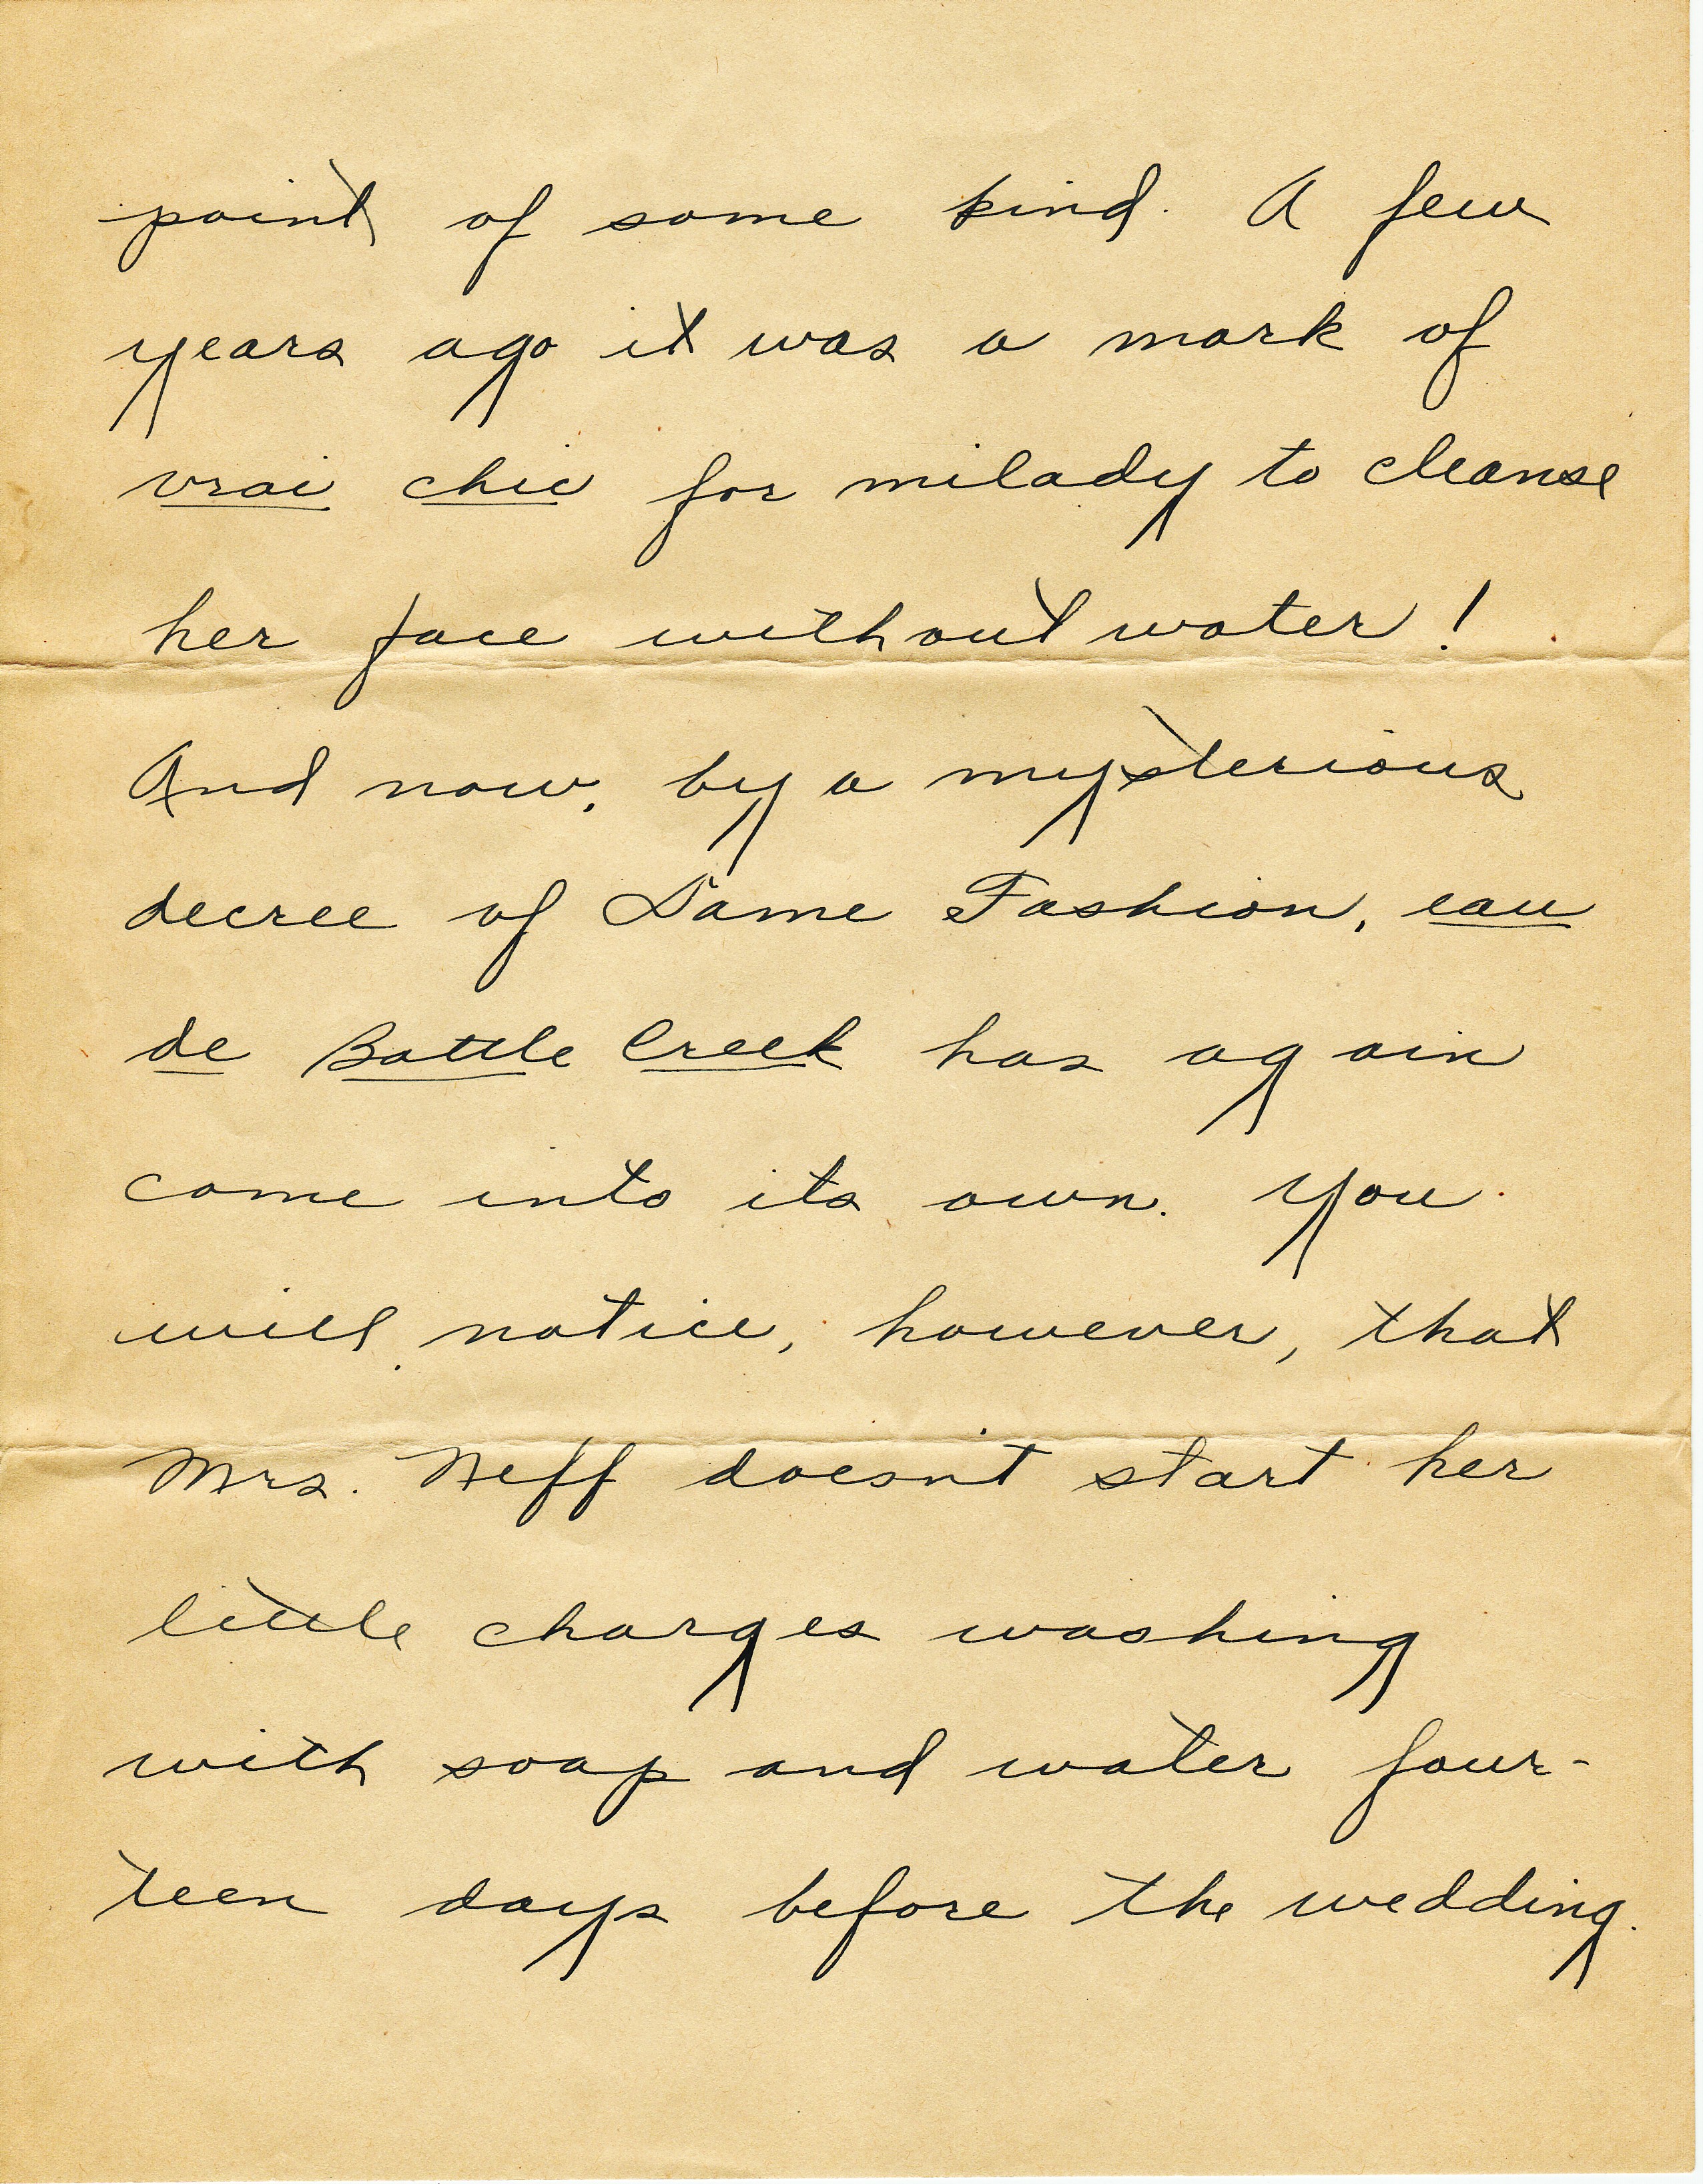 point of some kind. A few
years ago it was a mark of
vrai chic for milady to cleanse
her face without water!
And now, by a mysterious
decree of Dame Fashion, eau
de Battle Creek has again
come into its own. You
will notice, however, that
Mrs. Neff doesn't start her
little charges washing
with soap and water four-
teen days before the wedding.